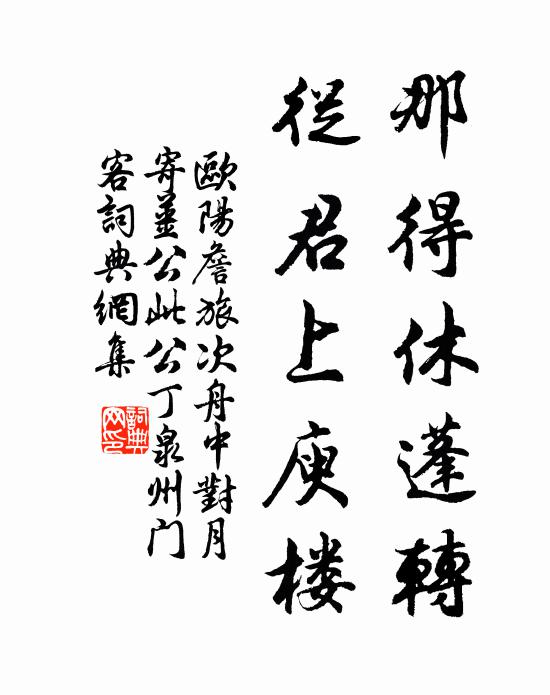 那得休蓬轉
從君上庾楼
歐陽詹旅次舟中對月
寄姜公此公丁泉州门
客詞典網集
詞典
网印